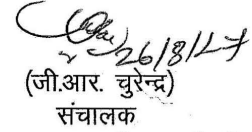 26/8/27
(जी.आर. चुरेन्द्र)
संचालक